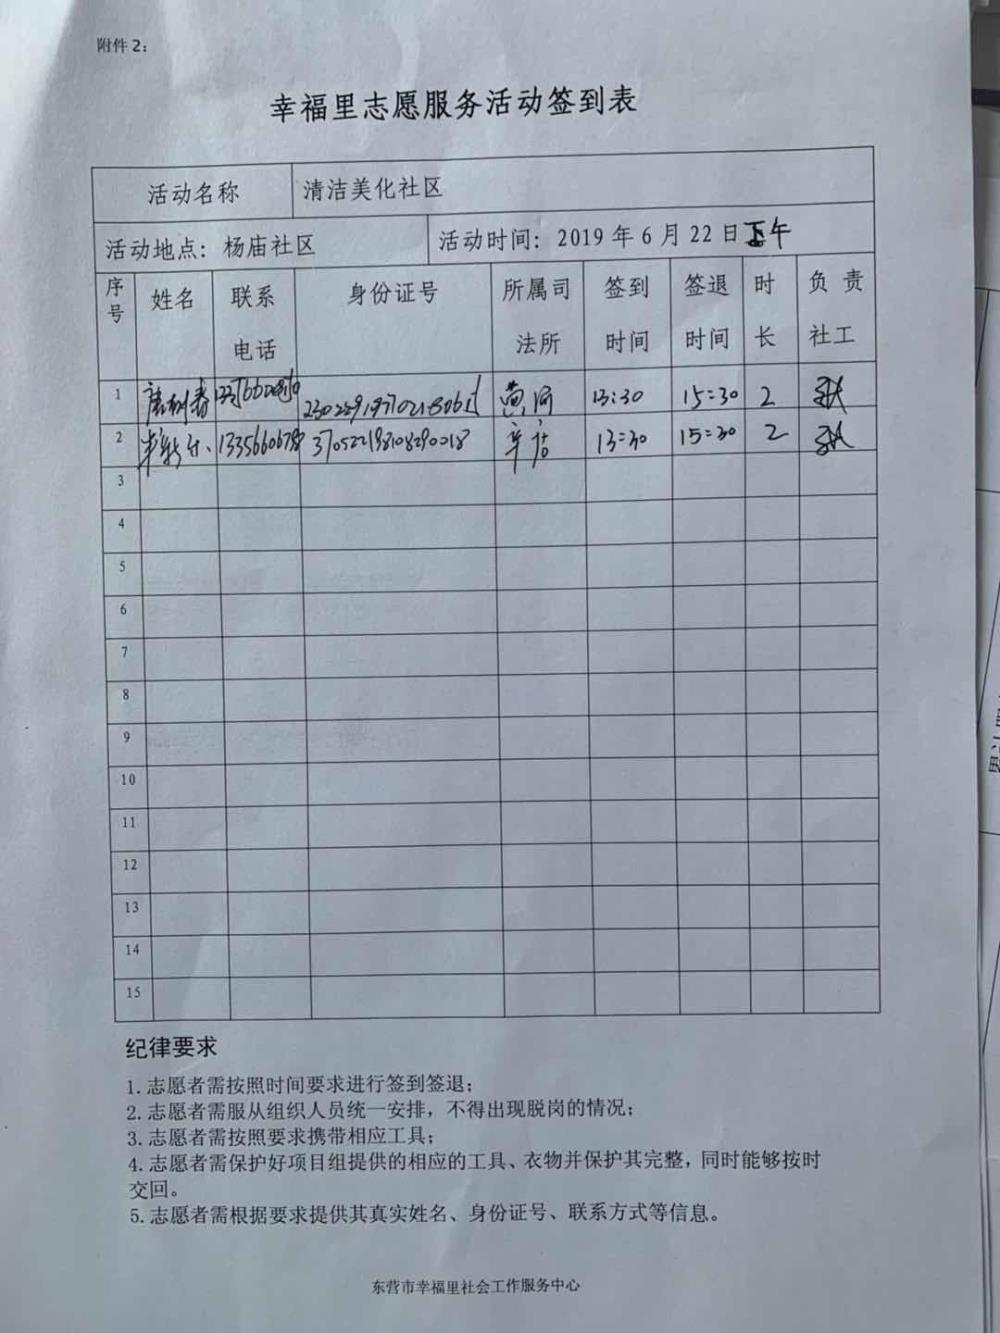 附件 2：
幸福里志愿服务活动签到表
活动名称 清洁美化社区
活动地点：杨庙社区 活动时间：2019 年 6 月 22 日下午
序号 姓名 联系电话 身份证号 所属司法所 签到时间 签退时间 时长 负责社工
1 黄河 13:30 15:30 2
2 辛店 13:30 15:30 2
3
4
5
6
7
8
9
10
11
12
13
14
15
纪律要求
1. 志愿者需按照时间要求进行签到签退；
2. 志愿者需服从组织人员统一安排，不得出现脱岗的情况；
3. 志愿者需按照要求携带相应工具；
4. 志愿者需保护好项目组提供的相应的工具、衣物并保护其完整，同时能够按时
交回。
5. 志愿者需根据要求提供其真实姓名、身份证号、联系方式等信息。
东营市幸福里社会工作服务中心